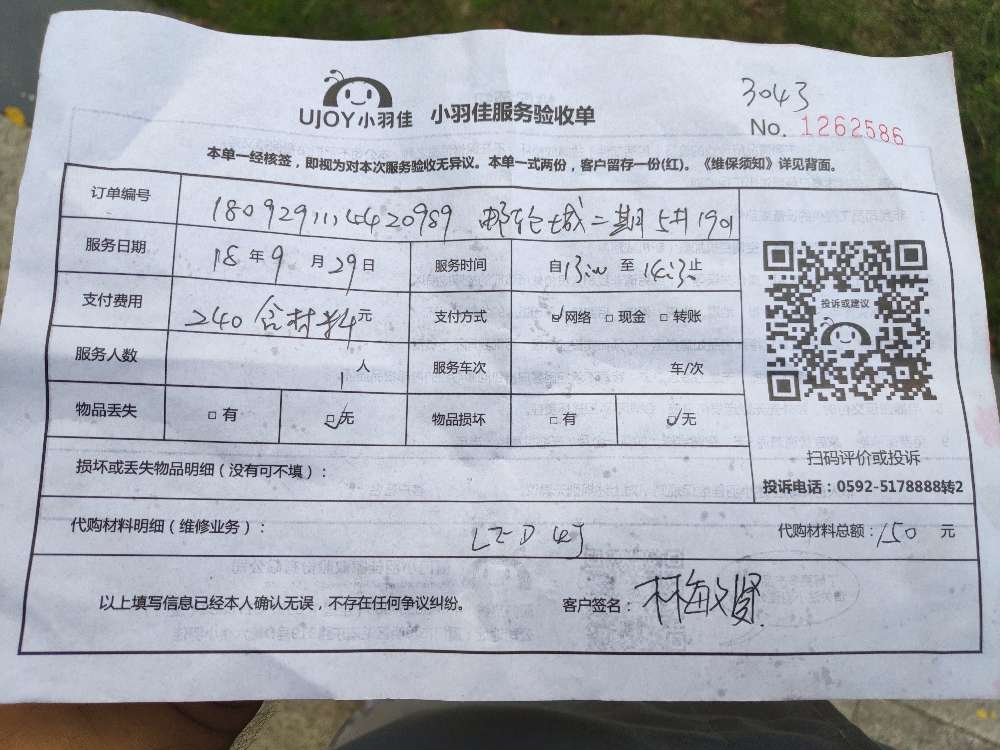 UJOY小羽佳 小羽佳服务验收单
3043
No. 1262586
本单一经核签，即视为对本次服务验收无异议。本单一式两份，客户留存一份(红)。《维保须知》详见背面。
订单编号 邮轮城二期 1901
服务日期 18 年 9 月 29 日 服务时间 自 至 止
支付费用 240 含材料 元 支付方式 ☑网络 □现金 □转账
服务人数 1 人 服务车次 车/次
物品丢失 □有 ☑无 物品损坏 □有 ☑无
投诉或建议
扫码评价或投诉
投诉电话：0592-5178888转2
损坏或丢失物品明细（没有可不填）：
代购材料明细（维修业务）： LED 灯 代购材料总额：150 元
以上填写信息已经本人确认无误，不存在任何争议纠纷。 客户签名：